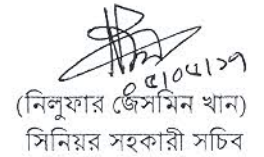 (নিলুফার জেসমিন খান)
সিনিয়র সহকারী সচিব